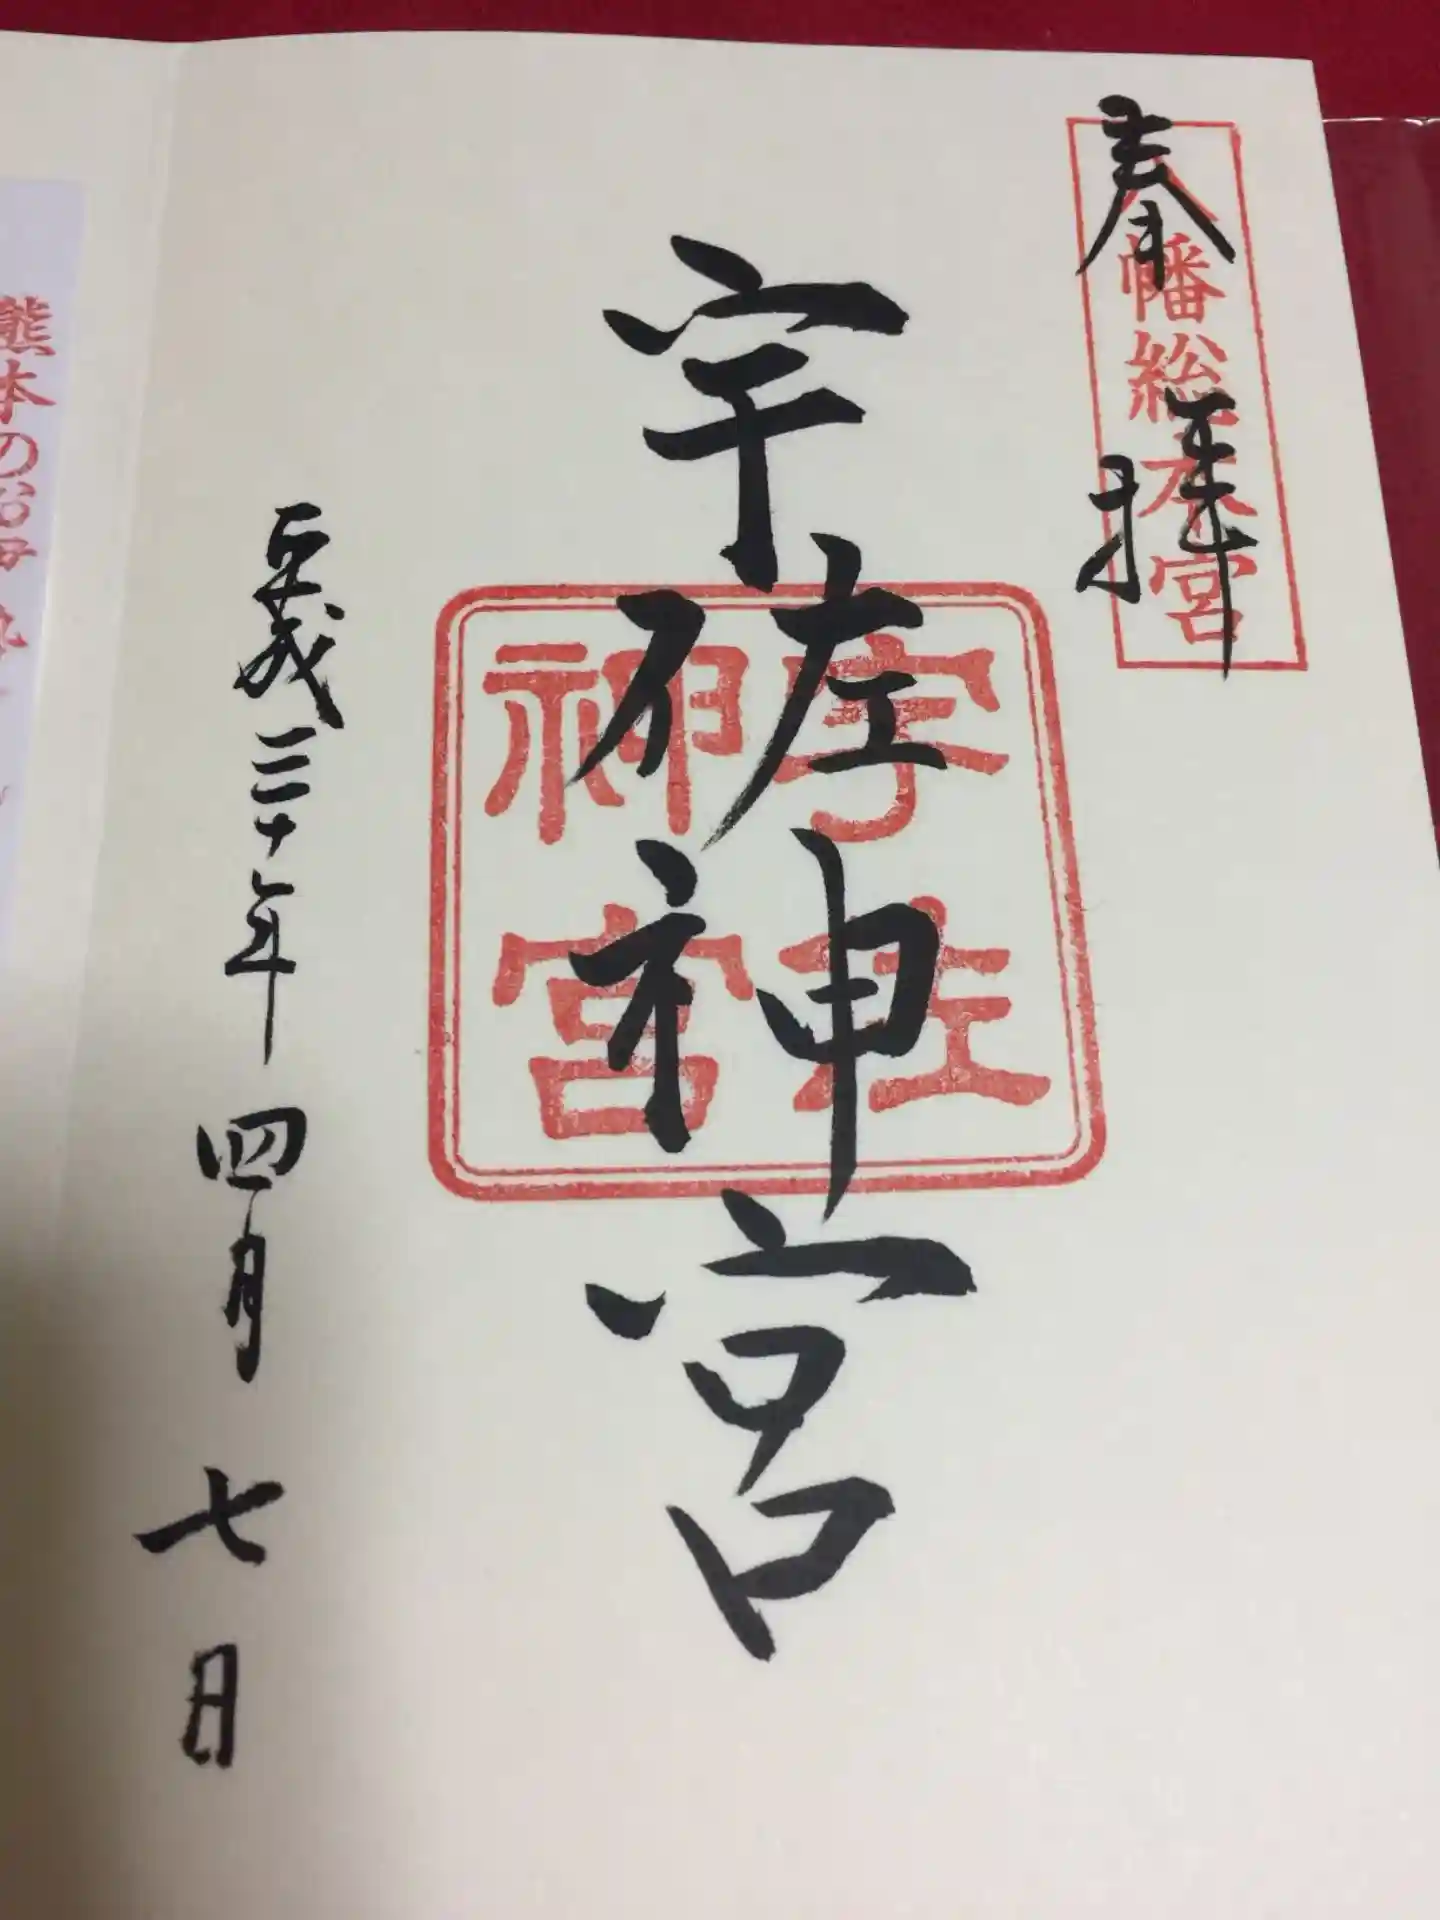 奉拝
八幡総本宮
宇佐神宮
宇佐
神宮
平成三十年四月七日
熊本の